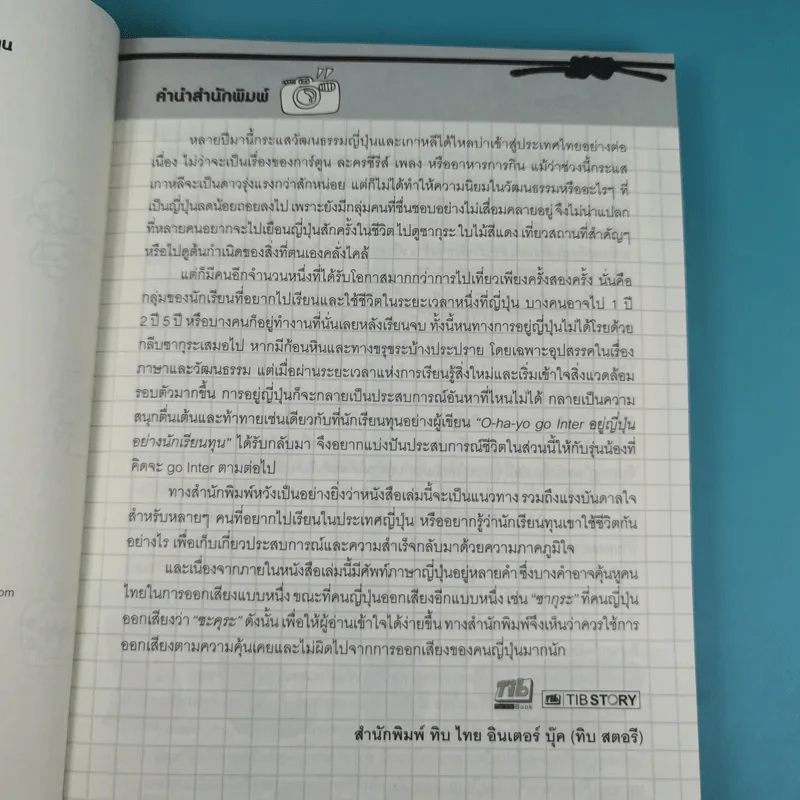 คำนำสำนักพิมพ์
หลายปีมานี้กระแสวัฒนธรรมญี่ปุ่นและเกาหลีได้ไหลบ่าเข้าสู่ประเทศไทยอย่างต่อ
เนื่อง ไม่ว่าจะเป็นเรื่องของการ์ตูน ละครซีรีส์ เพลง หรืออาหารการกิน แม้ว่าช่วงนี้กระแส
เกาหลีจะเป็นดาวรุ่งแรงกว่าสักหน่อย แต่ก็ไม่ได้ทำให้ความนิยมในวัฒนธรรมหรืออะไรๆ ที่
เป็นญี่ปุ่นลดน้อยถอยลงไป เพราะยังมีกลุ่มคนที่ชื่นชอบอย่างไม่เสื่อมคลายอยู่ จึงไม่น่าแปลก
ที่หลายคนอยากจะไปเยือนญี่ปุ่นสักครั้งในชีวิต ไปดูซากุระ ใบไม้สีแดง เที่ยวสถานที่สำคัญๆ
หรือไปดูต้นกำเนิดของสิ่งที่ตนเองคลั่งไคล้
แต่ก็มีคนอีกจำนวนหนึ่งที่ได้รับโอกาสมากกว่าการไปเที่ยวเพียงครั้งสองครั้ง นั่นคือ
กลุ่มของนักเรียนที่อยากไปเรียนและใช้ชีวิตในระยะเวลาหนึ่งที่ญี่ปุ่น บางคนอาจไป 1 ปี
2 ปี 5 ปี หรือบางคนก็อยู่ทำงานที่นั่นเลยหลังเรียนจบ ทั้งนี้หนทางการอยู่ญี่ปุ่นไม่ได้โรยด้วย
กลีบซากุระเสมอไป หากมีก้อนหินและทางขรุขระบ้างประปราย โดยเฉพาะอุปสรรคในเรื่อง
ภาษาและวัฒนธรรม แต่เมื่อผ่านระยะเวลาแห่งการเรียนรู้สิ่งใหม่และเริ่มเข้าใจสิ่งแวดล้อม
รอบตัวมากขึ้น การอยู่ญี่ปุ่นก็จะกลายเป็นประสบการณ์อันหาที่ไหนไม่ได้ กลายเป็นความ
สนุกตื่นเต้นและท้าทายเช่นเดียวกับที่นักเรียนทุนอย่างผู้เขียน “O-ha-yo go Inter อยู่ญี่ปุ่น
อย่างนักเรียนทุน” ได้รับกลับมา จึงอยากแบ่งปันประสบการณ์ชีวิตในส่วนนี้ให้กับรุ่นน้องที่
คิดจะ go Inter ตามต่อไป
ทางสำนักพิมพ์หวังเป็นอย่างยิ่งว่าหนังสือเล่มนี้จะเป็นแนวทาง รวมถึงแรงบันดาลใจ
สำหรับหลายๆ คนที่อยากไปเรียนในประเทศญี่ปุ่น หรืออยากรู้ว่านักเรียนทุนเขาใช้ชีวิตกัน
อย่างไร เพื่อเก็บเกี่ยวประสบการณ์และความสำเร็จกลับมาด้วยความภาคภูมิใจ
และเนื่องจากภายในหนังสือเล่มนี้มีศัพท์ภาษาญี่ปุ่นอยู่หลายคำ ซึ่งบางคำอาจคุ้นหูคน
ไทยในการออกเสียงแบบหนึ่ง ขณะที่คนญี่ปุ่นออกเสียงอีกแบบหนึ่ง เช่น “ซากุระ” ที่คนญี่ปุ่น
ออกเสียงว่า “ซะคุระ” ดังนั้น เพื่อให้ผู้อ่านเข้าใจได้ง่ายขึ้น ทางสำนักพิมพ์จึงเห็นว่าควรใช้การ
ออกเสียงตามความคุ้นเคยและไม่ผิดไปจากการออกเสียงของคนญี่ปุ่นมากนัก
Tib
Book
Tib TIBSTORY
สำนักพิมพ์ ทิบ ไทย อินเตอร์ บุ๊ค (ทิบ สตอรี)
om